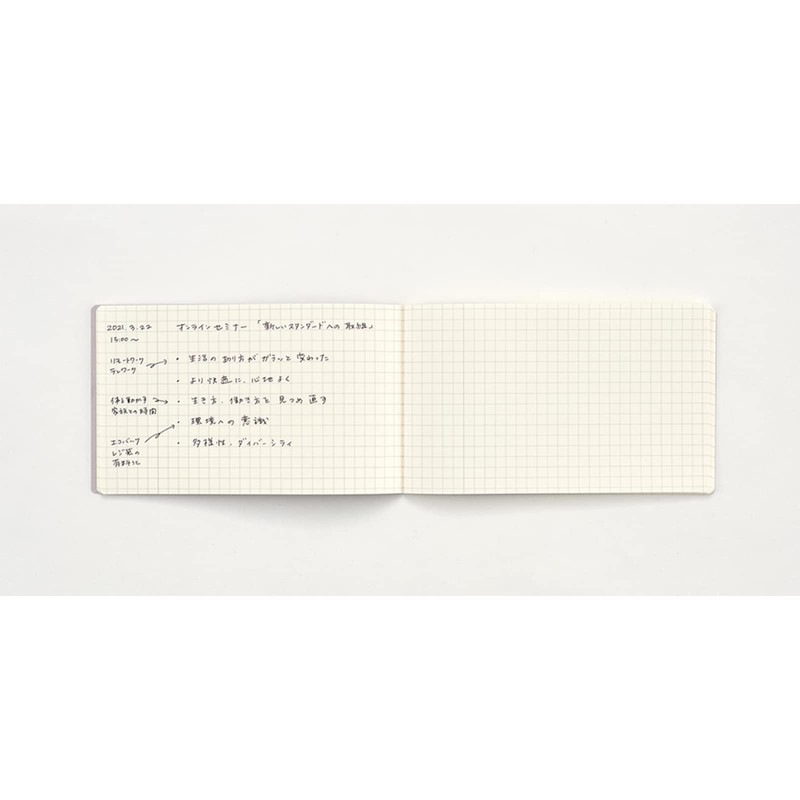 2021.3.22 オンラインセミナー 「新しいスタンダードへの取組」
15:00〜
リモートワーク
テレワーク
・生活の在り方がガラッと変わった
・より快適に、心地よく
体を動かす
家族との時間
・生き方、働き方を見つめ直す
・環境への意識
エコバック
レジ袋の
有料化
・多様性、ダイバーシティ